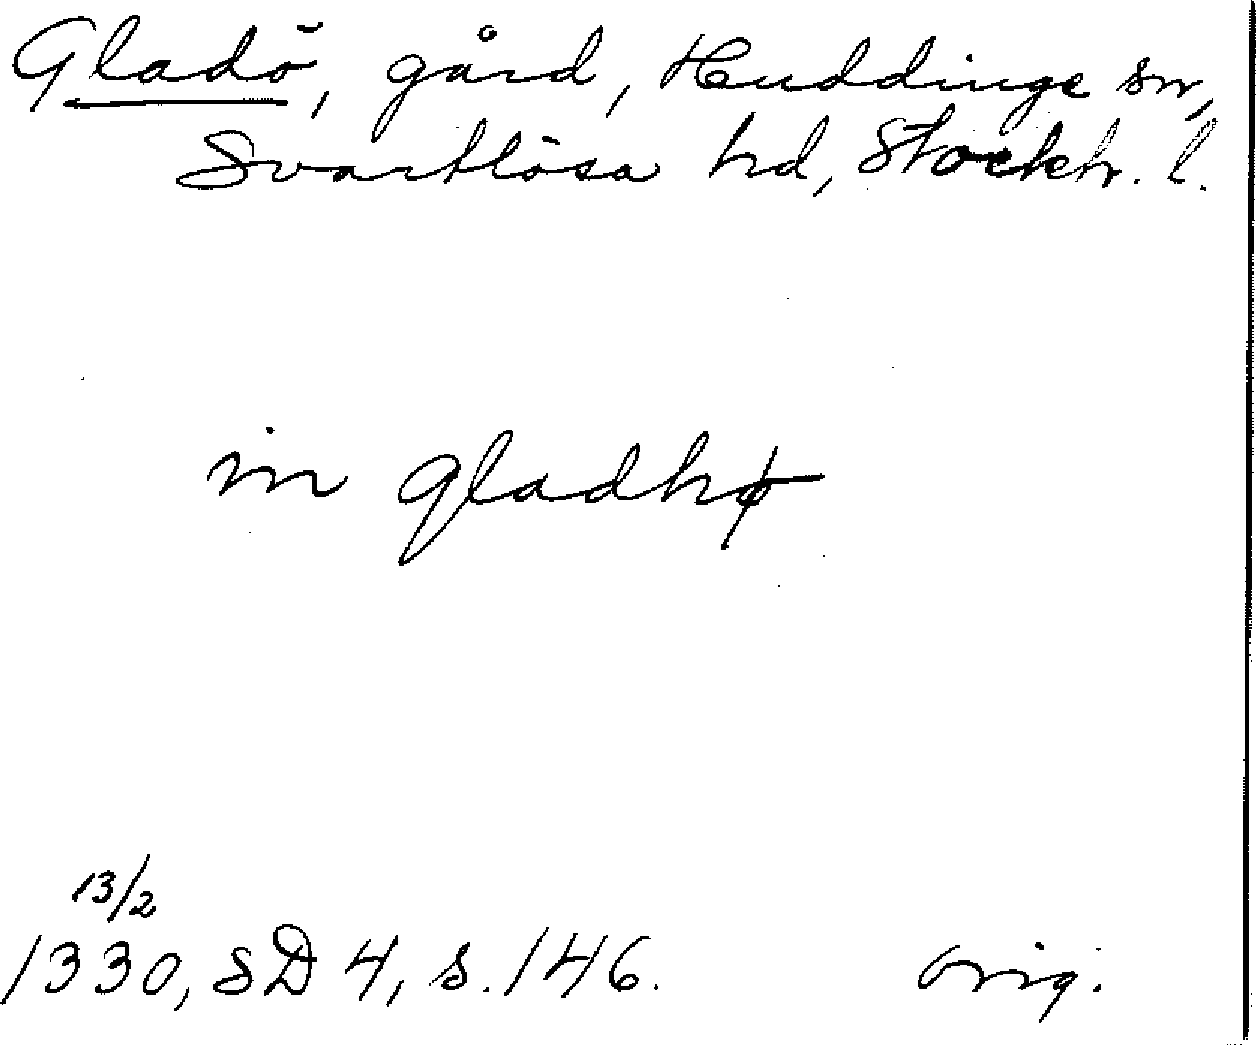 Gladö, gård, Huddinge sn,
Svartlösa hd, Stockh. l.
in gladhø
13/2
1330, SD 4, s. 146. orig.